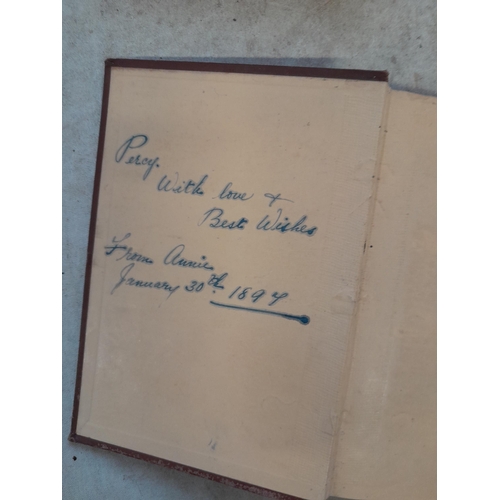 Percy.
With love +
Best Wishes
From Annie
January 30th 1894